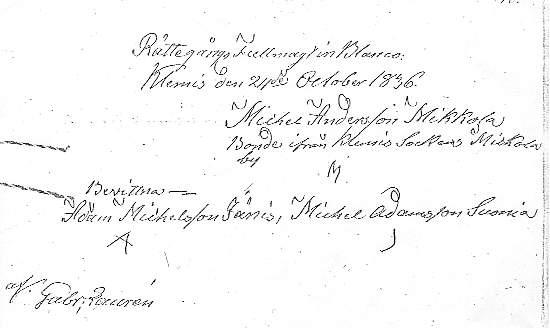 Rättegångs Fullmagt in Blanco:
Klemis den 24de October 1836.
Michel Andersson Mikkola
Bonde ifrån Klemis Sockens Miskola
by
M
Bevittna
Adam Michelsson Jänis, Michel Adamsson Suonia
A J
Gabr: Laurén